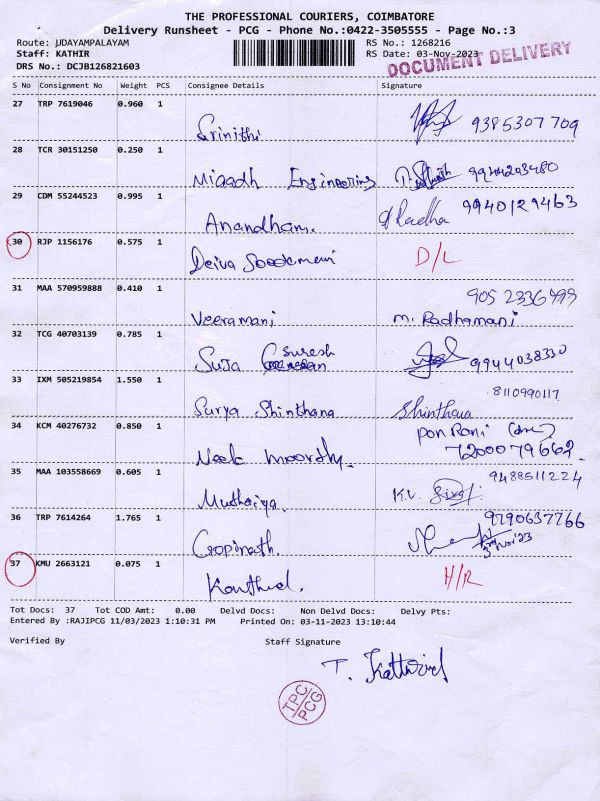 THE PROFESSIONAL COURIERS, COIMBATORE
Delivery Runsheet - PCG - Phone No.:0422-3505555 - Page No.:3
Route: UDAYAMPALAYAM RS No.: 1268216
Staff: KATHIR RS Date: 03-Nov-2023
DRS No.: DCJB126821603
DOCUMENT DELIVERY
S No Consignment No Weight PCS Consignee Details Signature
27 TRP 7619046 0.960 1
Srinithi 9385307709
28 TCR 30151250 0.250 1
Engineering
29 CDM 55244523 0.995 1
Anandham. Radha 9940129463
30 RJP 1156176 0.575 1
Deiva D/L
31 MAA 570959888 0.410 1
Veeramani M. Radhamani
32 TCG 40703139 0.785 1
Suja Suresh 9944038330
33 IXM 505219854 1.550 1 8110990117
Surya Shinthana
34 KCM 40276732 0.850 1 Pon Rani
Moorthy. 7200079662
35 MAA 103558669 0.605 1 9488511224
Muthaiya. K.V.
36 TRP 7614264 1.765 1 9790637766
Gopinath.
37 KMU 2663121 0.075 1
H/R
Tot Docs: 37 Tot COD Amt: 0.00 Delvd Docs: Non Delvd Docs: Delvy Pts:
Entered By :RAJIPCG 11/03/2023 1:10:31 PM Printed On: 03-11-2023 13:10:44
Verified By Staff Signature
T. Kathirvel
TPC
PCG